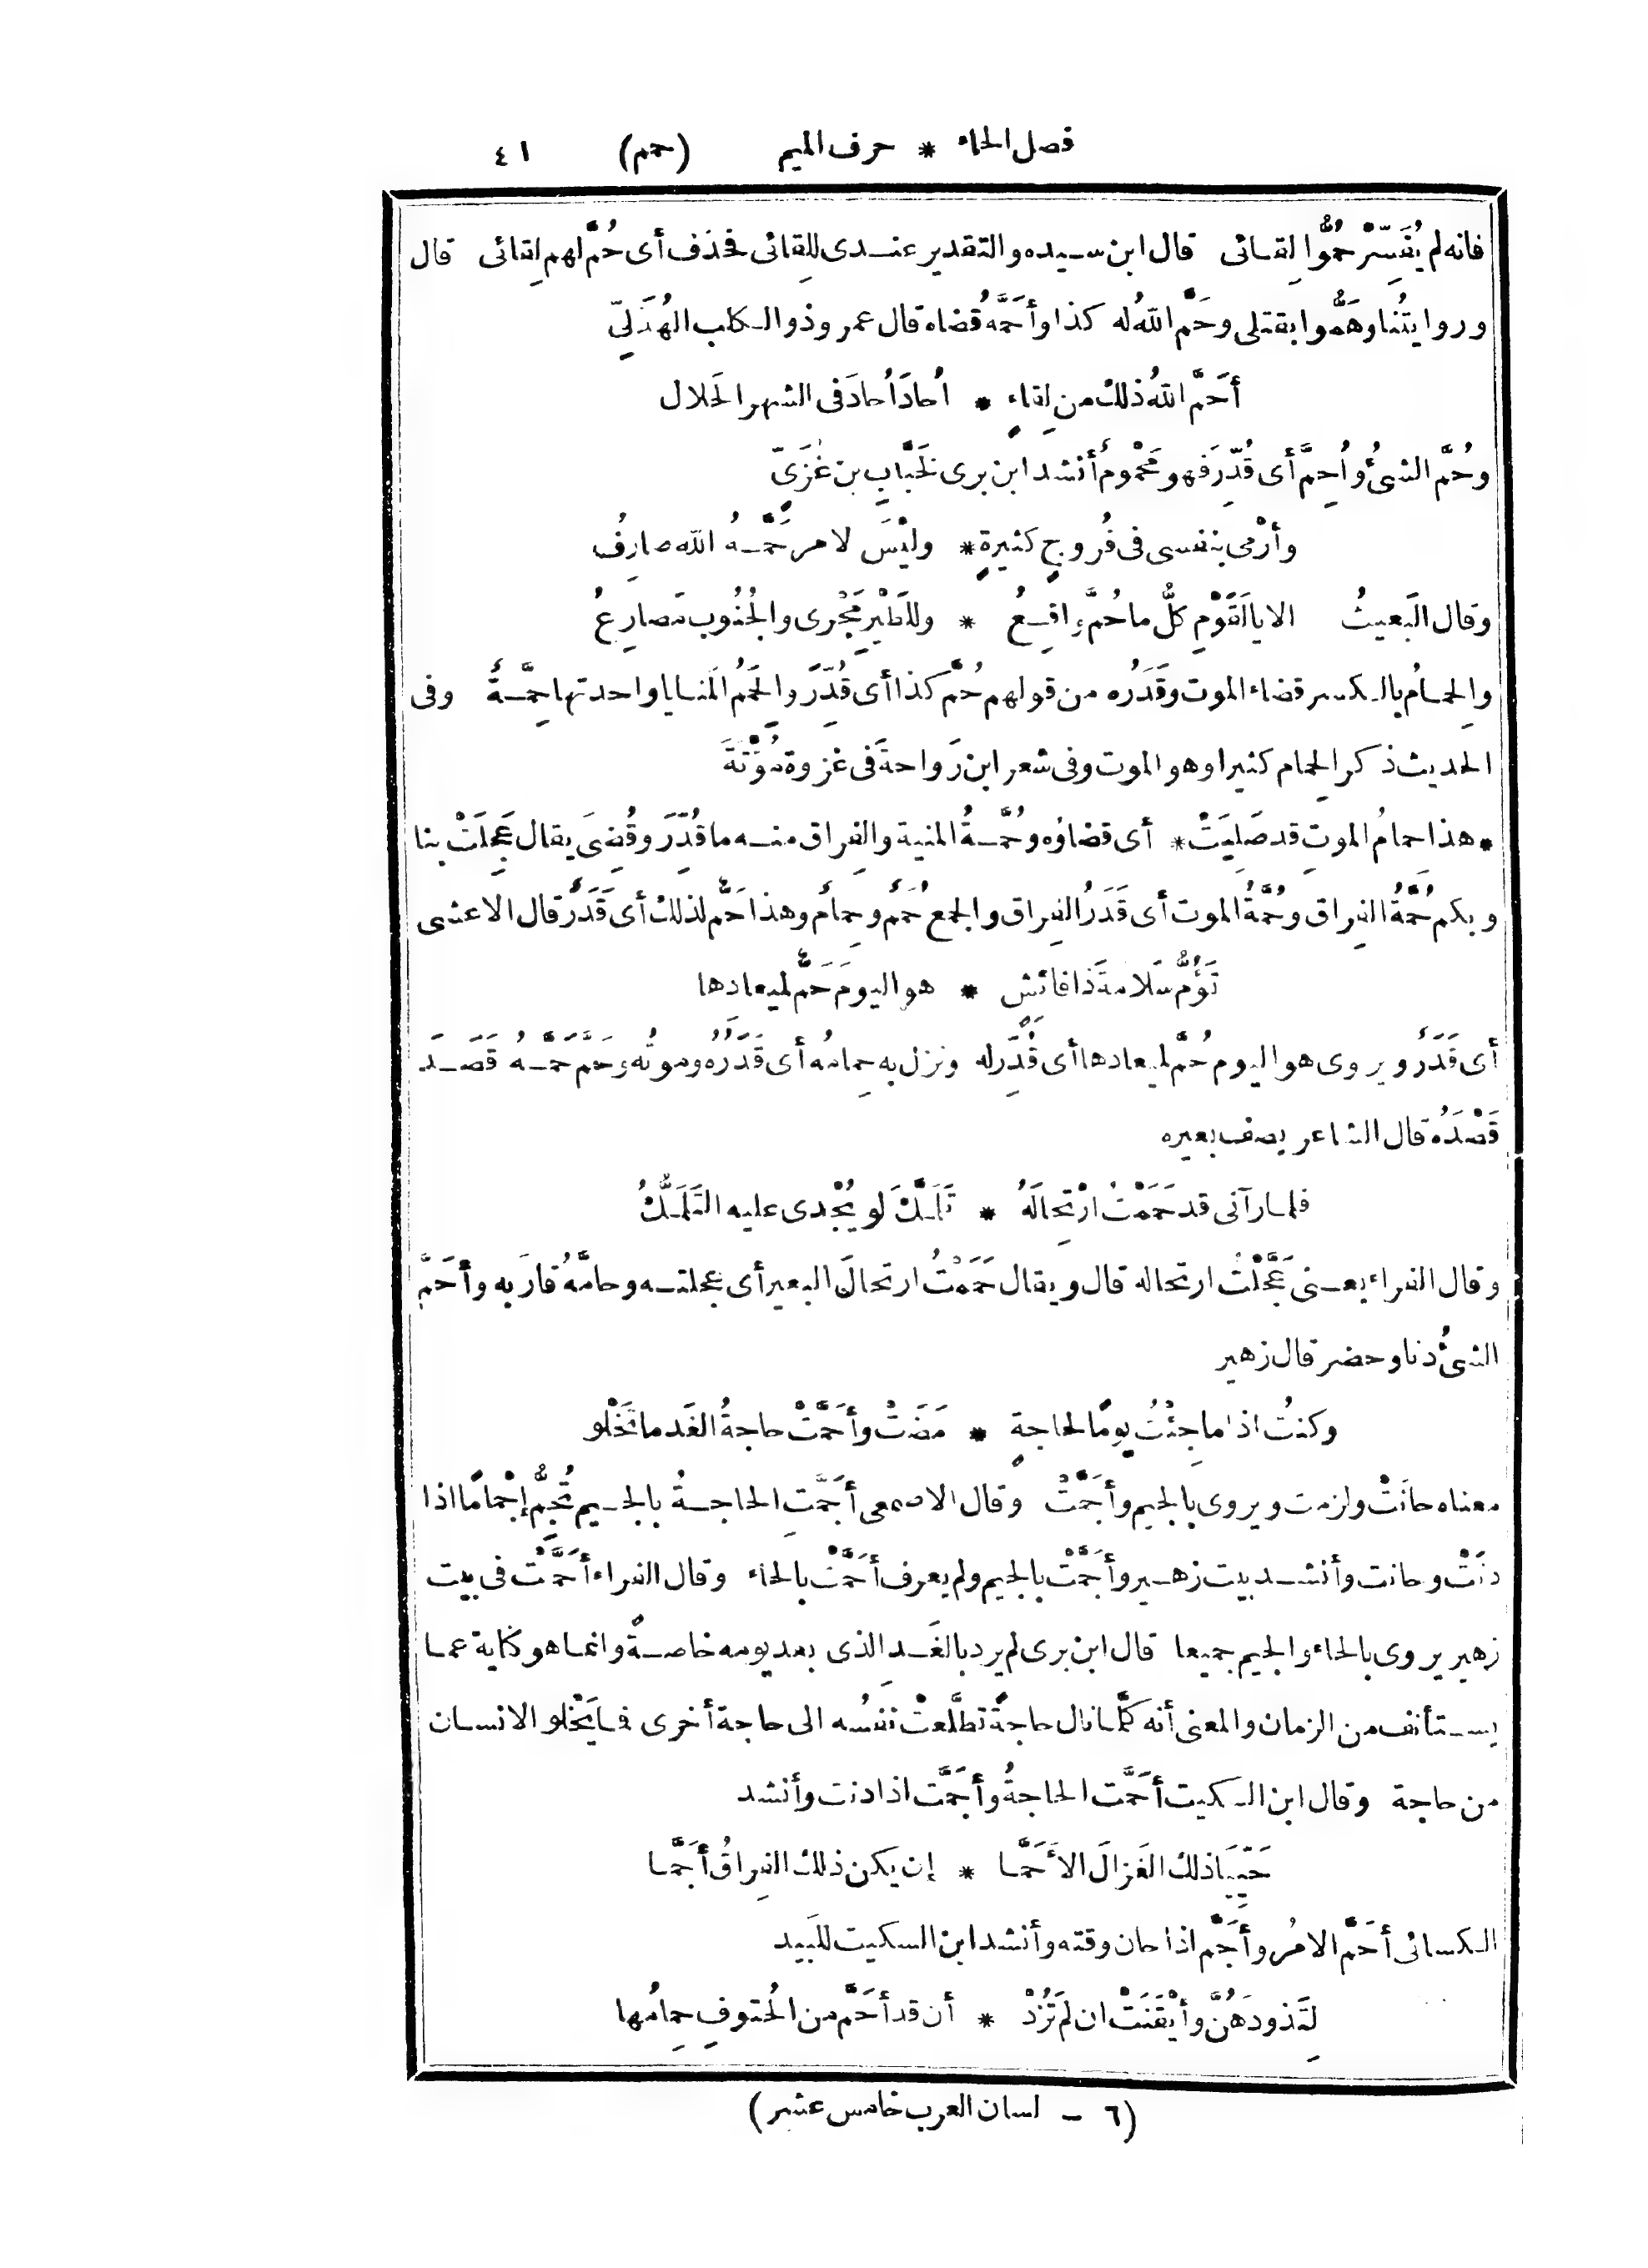 فصل الحاء * حرف الميم (حمم) ٤١
فانه لم يُفَسِّرْ حُمُّوا لِقائى قال ابن سيده والتقدير عندى لِلِقائى فحذف أى حُمَّ لهم لِقائى قال
وروايتُنا وهَمُّوا بقتلى وحَمَّ اللهُ له كذا وأَحَمَّهُ قضاه قال عمرو ذو الكلب الهُذَلِىّ
أَحَمَّ اللهُ ذلك من لِقاءٍ * أُحادَ أُحادَ فى الشهر الحَلال
وحُمَّ الشىُٔ وأُحِمَّ أى قُدِّرَ فهو مَحْمُومٌ أنشد ابن برى لخَبَّابِ بن غُزَىٍّ
وأَرْمِى بنفسى فى فُروجٍ كثيرةٍ * وليْسَ لامر حَمَّهُ الله صارِفُ
وقال البَعيثُ الا يا لَقَوْمِ كلُّ ما حُمَّ واقِعُ * وللطَيْرِ مَجْرى والجُنُوب مَصارِعُ
والحِمامُ بالكسر قضاء الموت وقَدَرُه من قولهم حُمَّ كذا أى قُدِّرَ والحِمَمُ المَنايا واحدتها حِمَّةٌ وفى
الحديث ذكر الحِمام كثيرا وهو الموت وفى شعر ابن رَواحةَ فى غزوة مُؤْتَةَ
* هذا حِمامُ الموتِ قد صَلِيَتْ * أى قضاؤه وحُمَّةُ المنية والفِراق منه ما قُدِّرَ وقُضِىَ يقال عَجِلَتْ بنا
وبكم حُمَّةُ الفِراق وحُمَّةُ الموت أى قَدَرُ الفِراق والجمع حُمَمٌ وحِمامٌ وهذا حَمٌّ لذلك أى قَدَرٌ قال الاعشى
تَؤُمُّ سَلامةَ ذا فائشٍ * هو اليومَ حَمٌّ لميعادها
أى قَدَرٌ ويروى هو اليوم حُمَّ لميعادها أى قُدِّرَ له ونزل به حِمامُه أى قَدَرُه وموتُه وحَمَّ حَمَّهُ قَصَدَ
قَصْدَهُ قال الشاعر يصف بعيره
فلما رآنى قد حَمَمْتُ ارْتِحالَهُ * تَلَمَّكَ لو يُجْدى عليه التَلَمُّكُ
وقال الفراء يعنى عَجَّلْتُ ارتحاله قال ويقال حَمَمْتُ ارتحالَ البعير أى عجلته وحامَّهُ قارَبه وأَحَمَّ
الشىُٔ دنا وحضر قال زهير
وكنتُ اذا ما جِئْتُ يومًا لحاجةٍ * مَضَتْ وأَحَمَّتْ حاجةُ الغَد ما تَخْلو
معناه حانَتْ ولزمت ويروى بالجيم وأَجَمَّتْ وقال الاصمعى أَجَمَّتِ الحاجةُ بالجيم تُجِمُّ إجْمامًا اذا
دَنَتْ وحانت وأنشد بيت زهير وأَجَمَّتْ بالجيم ولم يعرف أَحَمَّتْ بالحاء وقال الفراء أَحَمَّتْ فى بيت
زهير يروى بالحاء والجيم جميعا قال ابن برى لم يرد بالغَدِ الذى بعد يومه خاصةً وانما هو كناية عما
يستأنف من الزمان والمعنى أنه كلَّما نال حاجةً تطلَّعتْ نفسُه الى حاجة أخرى فما يَخْلو الانسان
من حاجة وقال ابن السكيت أَحَمَّت الحاجةُ وأَجَمَّت اذا دنت وأنشد
حَيِّيَا ذلك الغَزالَ الأَحَمَّا * إن يكن ذلك الفِراقُ أَجَمَّا
الكسائى أَحَمَّ الامُر وأَجَمَّ اذا حان وقته وأنشد ابن السكيت للَبيد
لِتَذودَهُنَّ وأَيْقَنَتْ ان لم تَذُدْ * أن قد أَحَمَّ من الحُتوفِ حِمامُها
(٦ - لسان العرب خامس عشر)